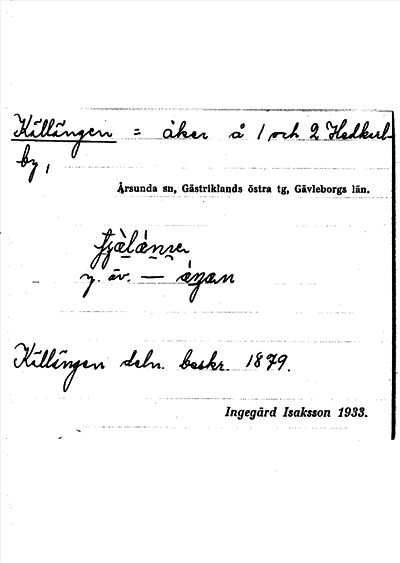 Källängen = åker å 1 och 2 Hedkarl-
by,
Årsunda sn, Gästriklands östra tg, Gävleborgs län.
y. äv. — ángan
Källängen deln. beskr. 1879.
Ingegärd Isaksson 1933.